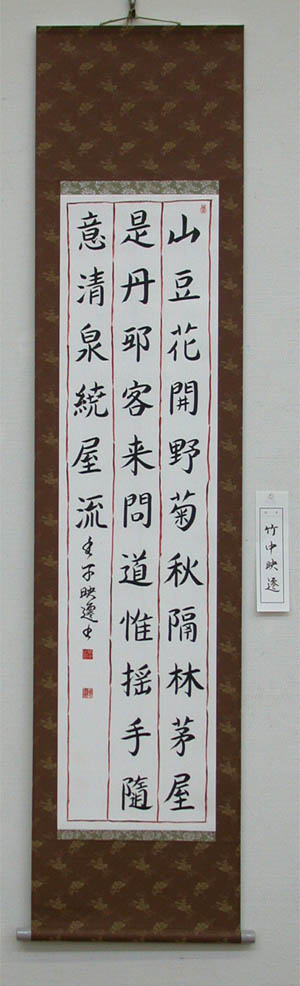 山豆花開野菊秋隔林茅屋
是丹邱客来問道惟揺手隨
意清泉繞屋流
竹中映